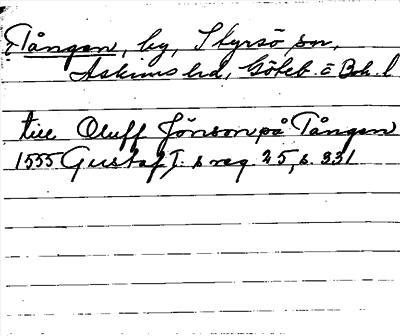 Tången, by, Styrsö sn,
Askims hd, Göteb. o Boh. l
till Oluff Jönson på Tången
1555 Gustaf I. s reg 25, s. 331